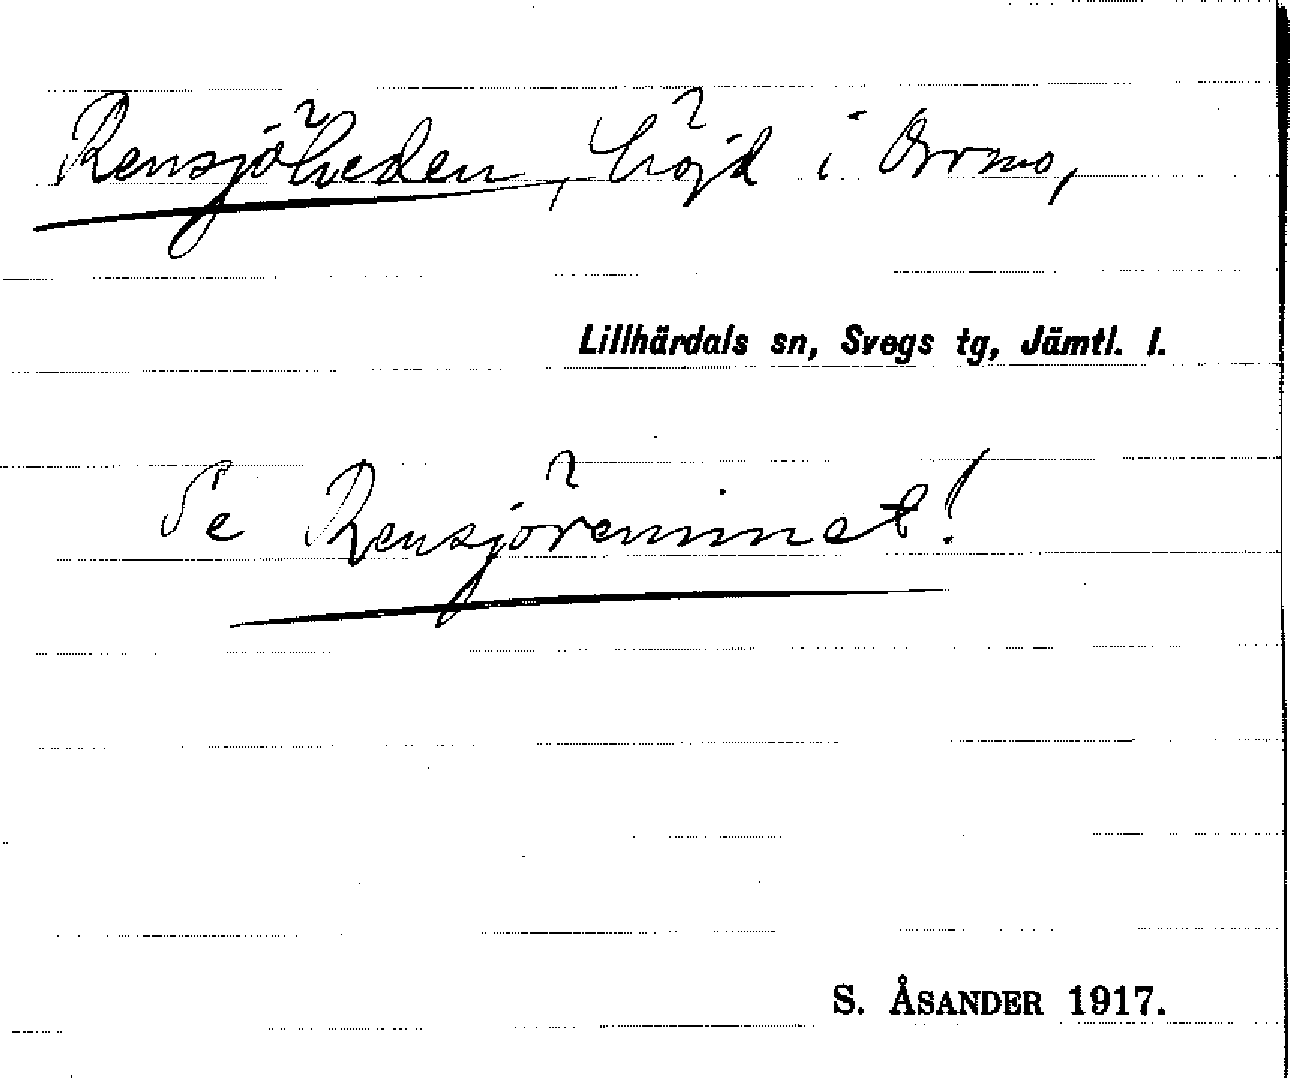 Rensjöheden, höjd i Orrmo,
Lillhärdals sn, Svegs tg, Jämtl. l.
Se Rensjöreninnet!
S. ÅSANDER 1917.